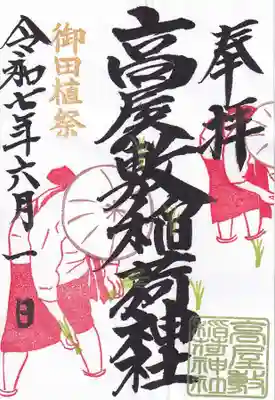 奉拝
高屋敷稲荷社
御田植祭
令和七年六月一日
高屋敷
稲荷神社